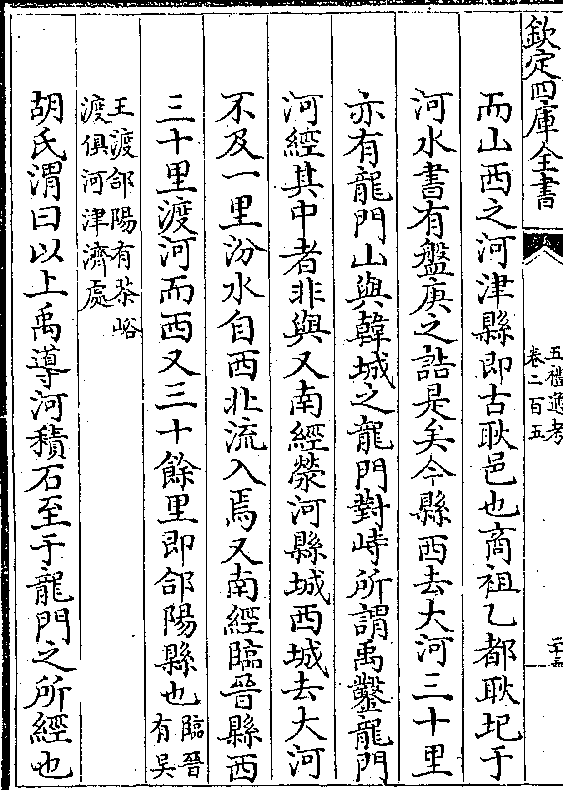 欽定四庫全書
五禮通考
卷二百五
而山西之河津縣即古耿邑也商祖乙都耿圮于
河水書有盤庚之誥是矣今縣西去大河三十里
亦有龍門山與韓城之龍門對峙所謂禹鑿龍門
河經其中者非與又南經滎河縣城西城去大河
不及一里汾水自西北流入焉又南經臨晉縣西
三十里渡河而西又三十餘里即郃陽縣也臨晉
有吳
王渡郃陽有茶峪
渡俱河津濟處
胡氏渭曰以上禹導河積石至于龍門之所經也